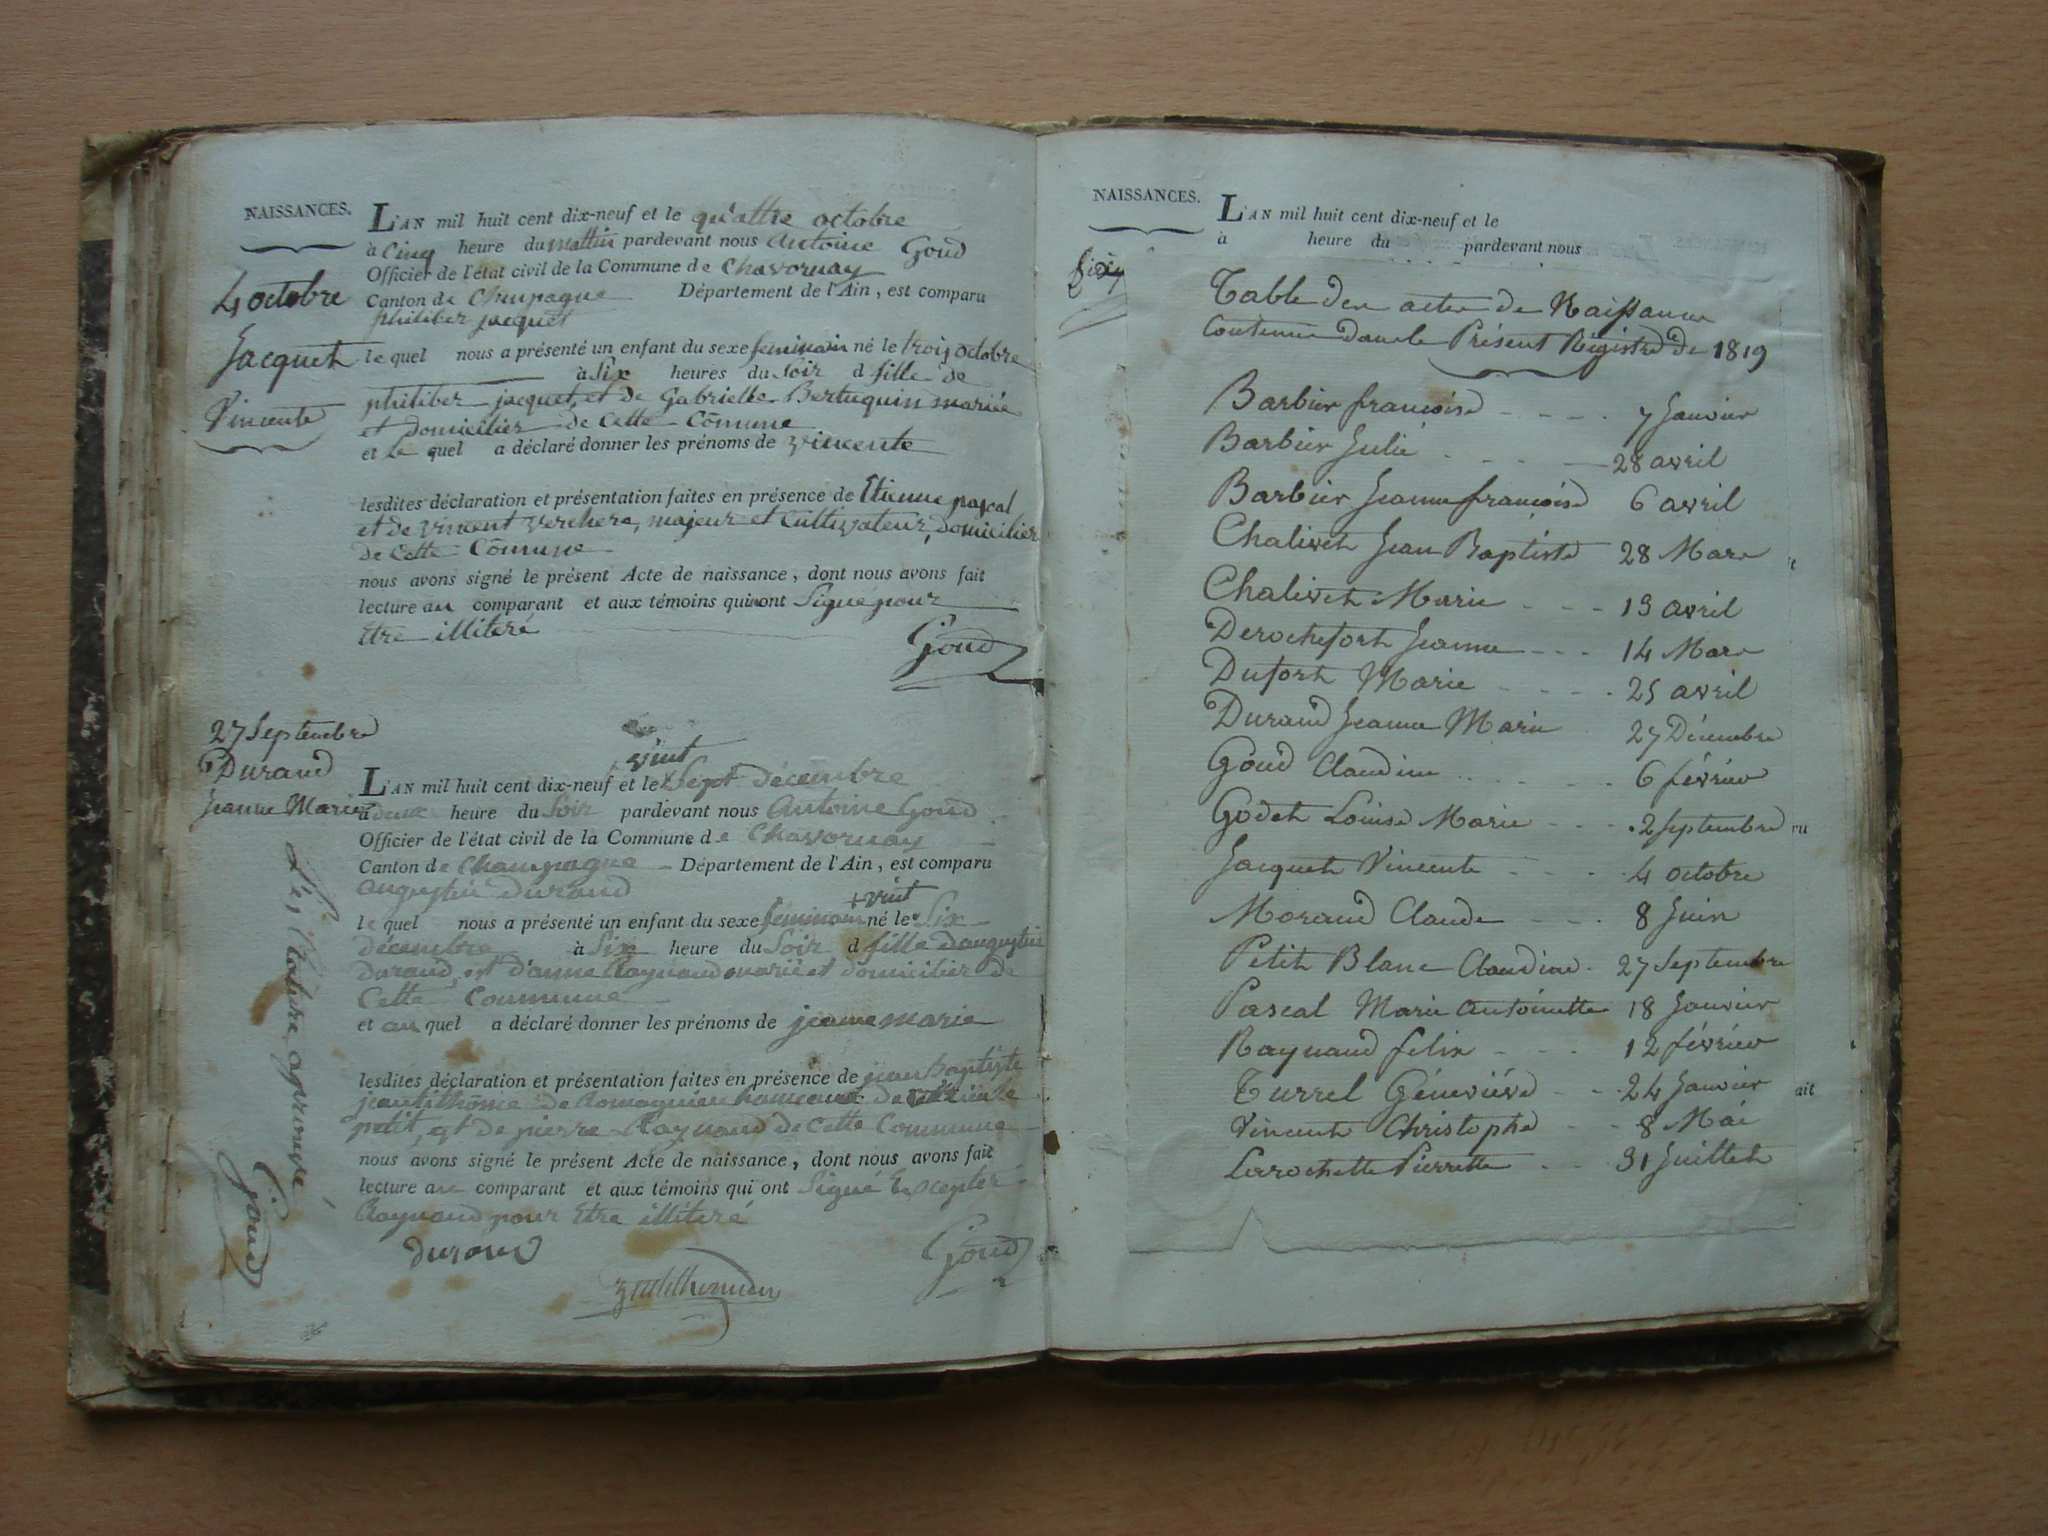 NAISSANCES.
4 octobre
Jacquet
Vincente
L'AN mil huit cent dix-neuf et le quattre octobre
à Cinq heure du mattin pardevant nous Antoine Goud
Officier de l'état civil de la Commune de Chavornay
Canton de Champagne Département de l'Ain, est comparu
philiber jacquet
le quel nous a présenté un enfant du sexe feminain né le trois octobre
à Six heures du Soir d fille de
philiber jacquet et de Gabrielle Bertuquin mariée
et domicilier de Cette Cõmune
et le quel a déclaré donner les prénoms de vincente
lesdites déclaration et présentation faites en présence de Etienne pascal
et de vincent verchere, majeur et Cultivateur, domicilier
de Cette Cõmune
nous avons signé le présent Acte de naissance, dont nous avons fait
lecture au comparant et aux témoins qui n'ont Signé pour
Etre illiteré
Goud
27 Septembre
Durand
Jeanne Marie
vint
L'AN mil huit cent dix-neuf et le Sept décembre
à deux heure du Soir pardevant nous Antoine Goud
Officier de l'état civil de la Commune de Chavornay
Canton de Champagne Département de l'Ain, est comparu
augustin durand
+ vint
le quel nous a présenté un enfant du sexe féminain né le Six
décembre à Six heure du Soir d fille d'augustin
durand, et d'anne Raynaud marié et domicilier de
Cette Commune
et au quel a déclaré donner les prénoms de jeanne marie
lesdites déclaration et présentation faites en présence de jean baptiste
jentithome de Romagnieu hameau de
petit, et de pierre Raynaud de Cette Commune
nous avons signé le présent Acte de naissance, dont nous avons fait
lecture au comparant et aux témoins qui ont Signé Excepter
Raynaud pour Etre illiteré
durand
Goud
approuvé
Goud
NAISSANCES.
L'AN mil huit cent dix-neuf et le
à heure du pardevant nous
Table des actes de Naissance
Contenus dans le Présent Régistre de 1819
Barbier francoise - - - - 7 Janvier
Barbier Julie - - - - 28 avril
Barbier Jeanne francoise 6 avril
Chalivet Jean Baptiste 28 Mars
Chalivet Marie - - - 13 avril
Derochefort Jeanne - - - 14 Mars
Dufort Marie - - - - 25 avril
Durand Jeanne Marie 27 Décembre
Goud Claudine - - - - 6 février
Godet Louise Marie - - - 2 Septembre
Jacquet Vincente - - - 4 octobre
Morand Claude - - - 8 Juin
Petit Blanc Claudine - 27 Septembre
Pascal Marie Antoinette 18 Janvier
Raynaud felix - - - 12 février
Turrel Généviéve - - 24 Janvier
Vincent Christophe - - 8 Mai
Larochette Pierrette - - 31 Juillet